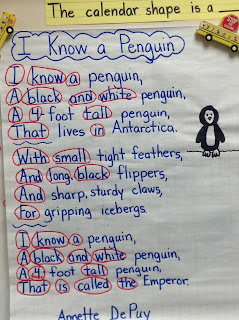 The calendar shape is a
I Know a Penguin
I know a penguin,
A black and white penguin,
A 4 foot tall penguin,
That lives in Antarctica.
With small tight feathers,
And long, black flippers,
And sharp, sturdy claws,
For gripping icebergs.
I know a penguin,
A black and white penguin,
A 4 foot tall penguin,
That is called the Emperor.
Annette DePuy